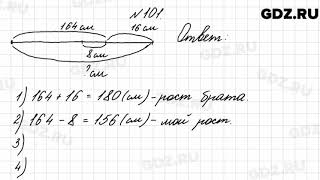 GDZ.RU
№101
164 см 16 см
Ответ:
8 см
? см
1) 164 + 16 = 180 (см) - рост брата.
2) 164 - 8 = 156 (см) - мой рост.
3)
4)
GDZ.RU